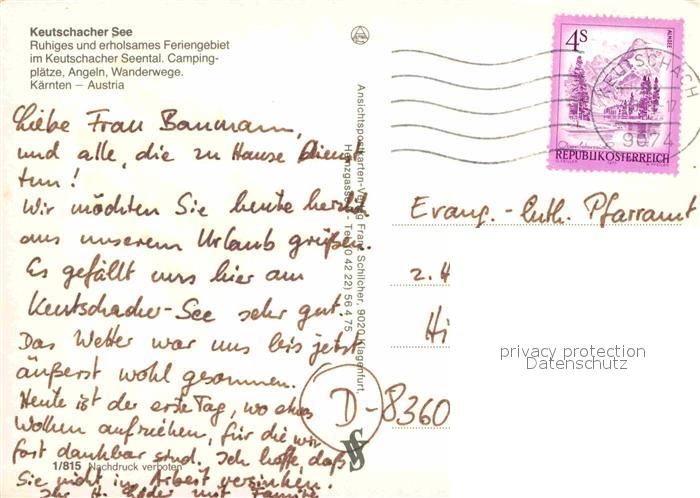 Keutschacher See
Ruhiges und erholsames Feriengebiet
im Keutschacher Seental. Camping-
plätze, Angeln, Wanderwege.
Kärnten – Austria
Liebe Frau Baumann,
und alle, die zu Hause Dienst
tun!
Wir möchten Sie heute herzlich
aus unserem Urlaub grüßen.
Es gefällt uns hier am
Keutschacher-See sehr gut.
Das Wetter war uns bis jetzt
äußerst wohl gesonnen.
Heute ist der erste Tag, wo etwas
Wolken aufziehen, für die wir
fast dankbar sind. Ich hoffe, daß
Sie nicht in Arbeit versinken!
Ihr H. mit Familie
1/815 Nachdruck verboten
Ansichtspostkarten-Verlag Franz Schilcher, 9020 Klagenfurt,
Heinzgasse - Tel. (0 42 22) 56 4 75
4S
ALMSEE
REPUBLIK ÖSTERREICH
KEUTSCHACH
9074
Evang.-Luth. Pfarramt
z. H
Hi
D-8360
privacy protection
Datenschutz